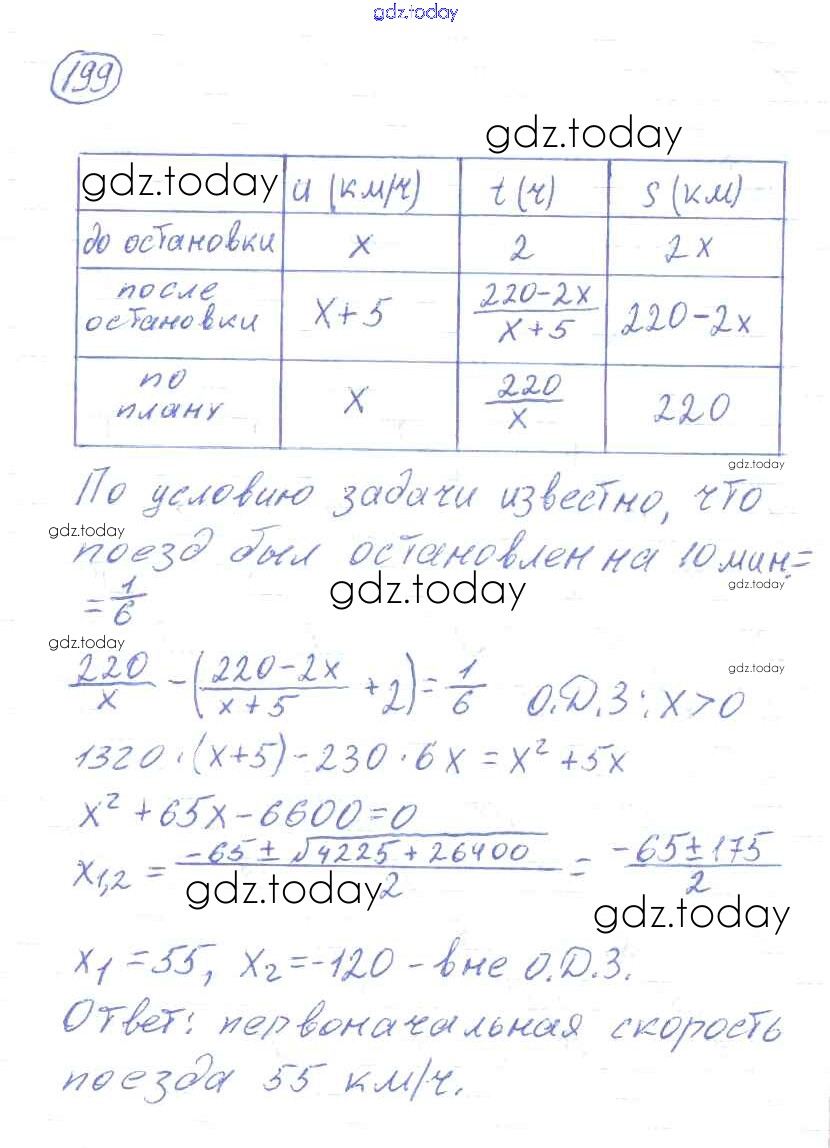 gdz.today
199
gdz.today
gdz.today u (км/ч) t (ч) S (км)
до остановки x 2 2x
после остановки x+5 220-2x/x+5 220-2x
по плану x 220/x 220
gdz.today
По условию задачи известно, что
gdz.today
поезд был остановлен на 10 мин.=
gdz.today
= 1/6
gdz.today
gdz.today
220/x - (220-2x/x+5 + 2) = 1/6 О.Д.З: x>0
gdz.today
1320·(x+5)-230·6x = x² +5x
x² +65x-6600=0
x1,2 = -65± √4225+26400/2 = -65±175/2
gdz.today
gdz.today
x1 =55, x2=-120 - вне О.Д.З.
Ответ: первоначальная скорость
поезда 55 км/ч.